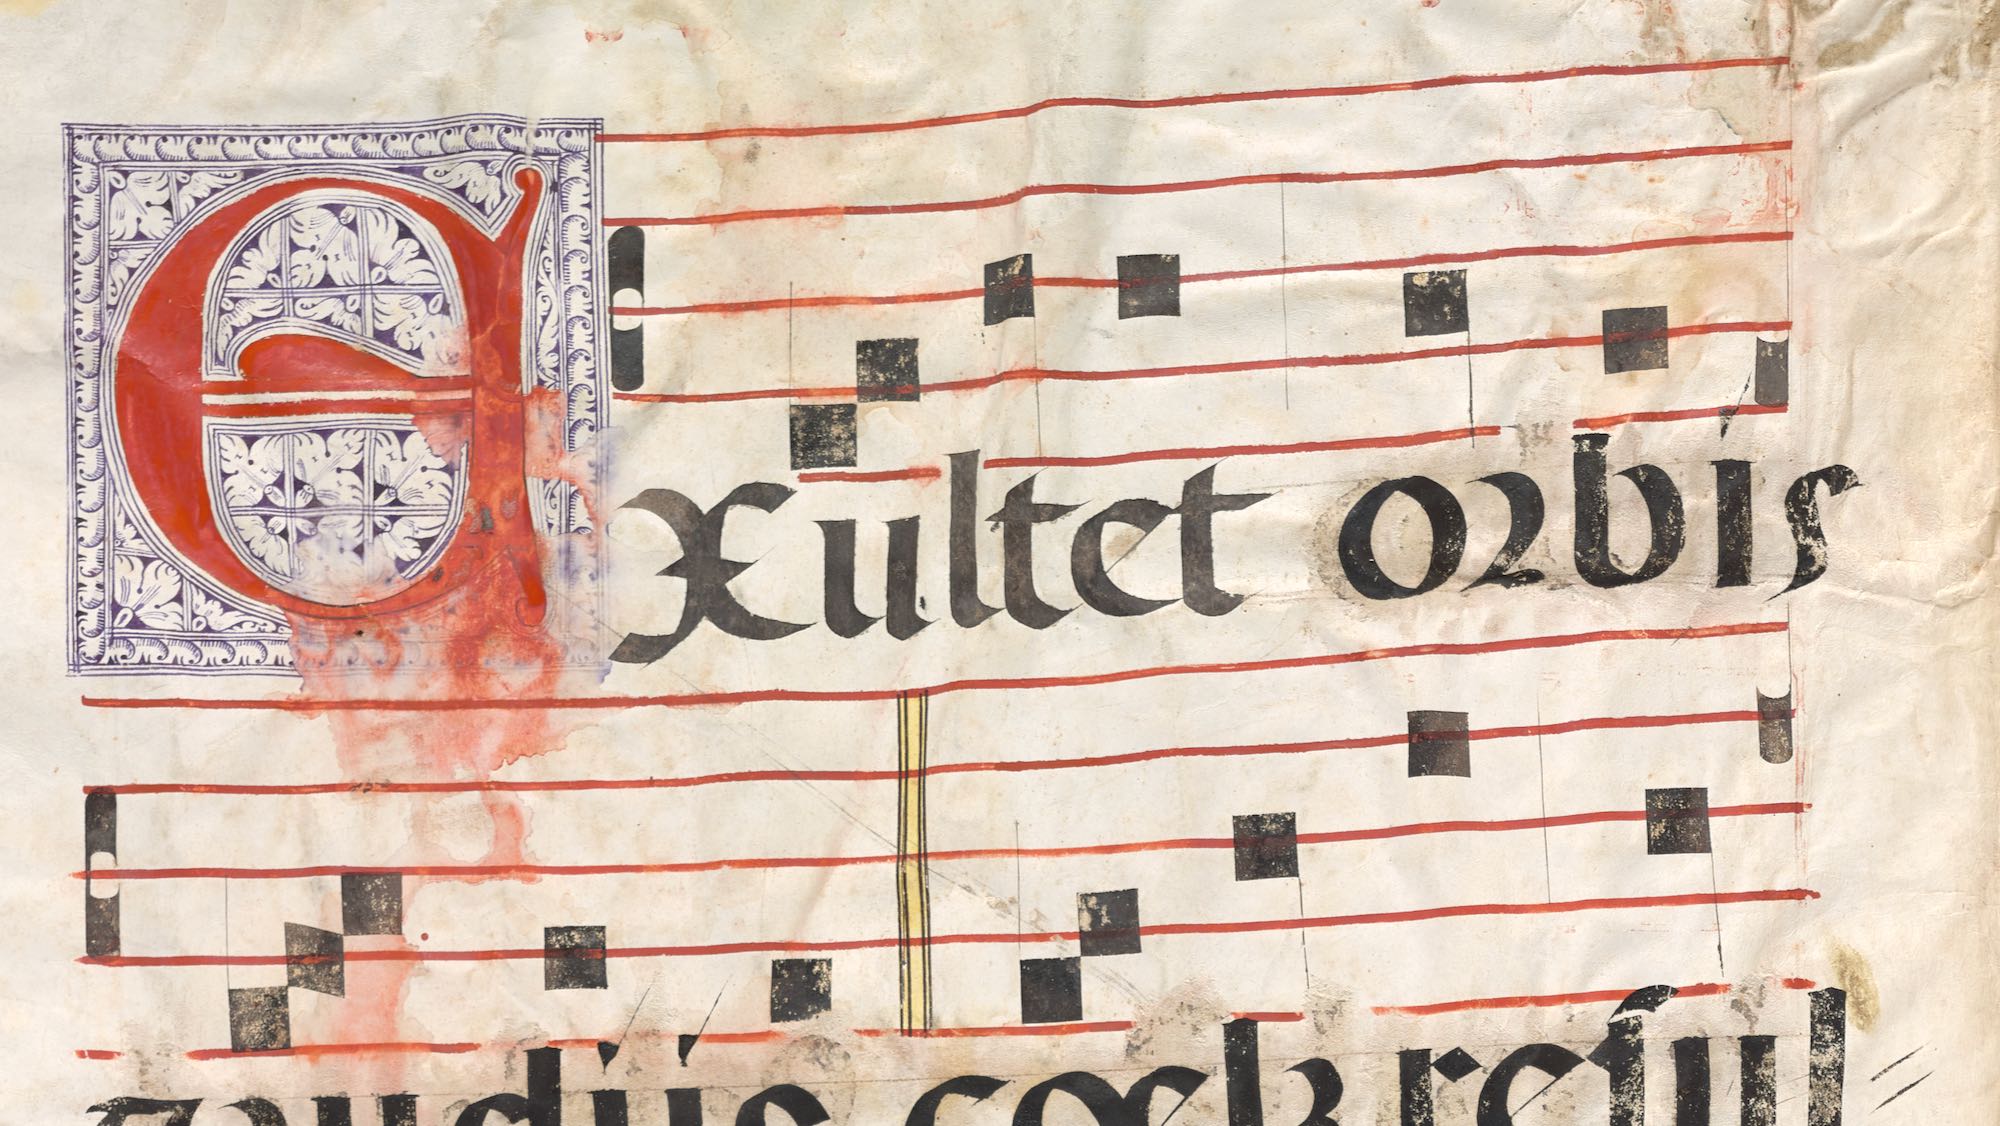 Exultet orbis
gaudijs cœlꝫ resul